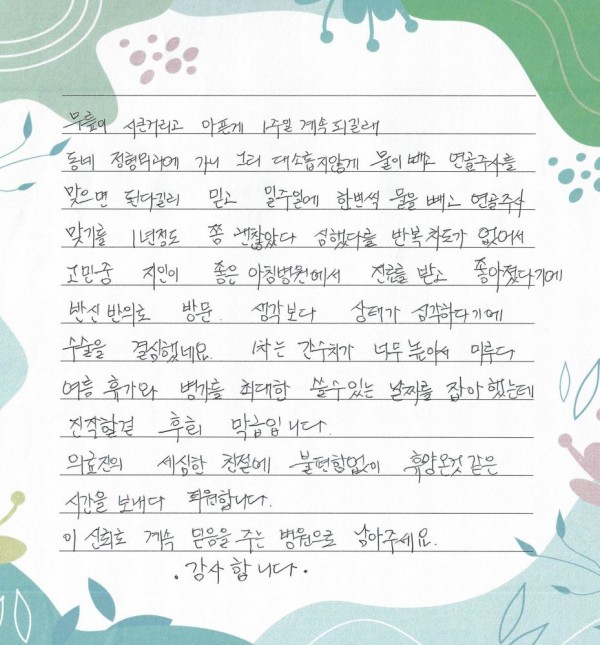 무릎이 시큰거리고 아픈게 1주일 계속 되길래
동네 정형외과에 가니 그리 대스롭지않게 물이 빼고 연골주사를
맞으면 된다길래 믿고 일주일에 한번씩 물을 빼고 연골주사
맞기를 1년정도 쫌 괜찮았다 심했다를 반복 차도가 없어서
고민중 지인이 좋은 아침병원에서 진료를 받고 좋아졌다기에
반신 반의로 방문. 생각보다 상태가 심각하다기에
수술을 결심했네요. 1차는 간수치가 너무 높아서 미루다
여름 휴가와 병가를 최대한 쓸수있는 날짜를 잡아 했는데
진작할걸 후회 막급입니다.
의료진의 세심한 친절에 불편함없이 휴양온것 같은
시간을 보내다 퇴원합니다.
이 신뢰로 계속 믿음을 주는 병원으로 남아주세요.
·감사합니다·